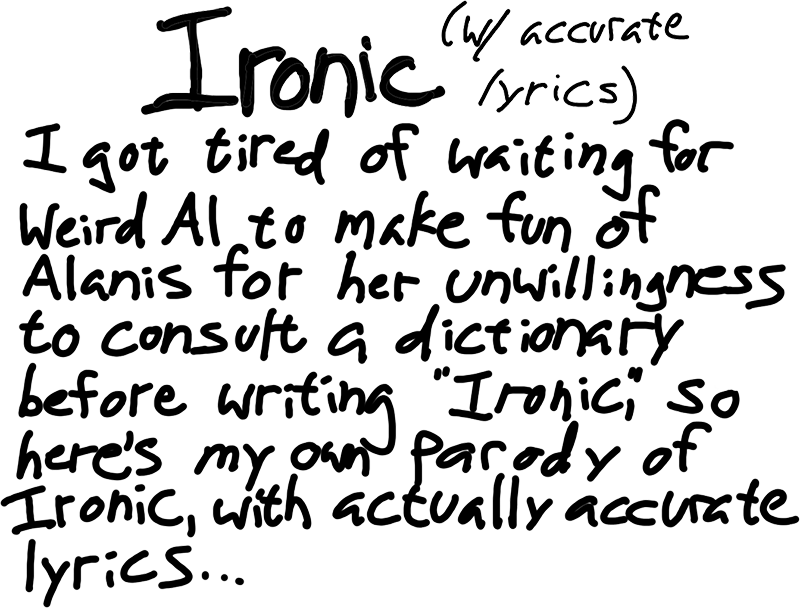 Ironic (w/ accurate
lyrics)
I got tired of waiting for
Weird Al to make fun of
Alanis for her unwillingness
to consult a dictionary
before writing "Ironic," so
here's my own parody of
Ironic, with actually accurate
lyrics...